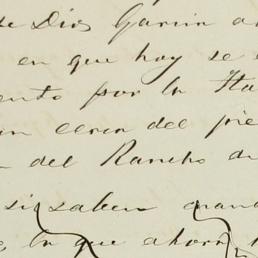 se Dios Garcia a
en que hoy se e
ento por la Ha
un cerca del pie
del Rancho de
si saben quand
, lo que ahora